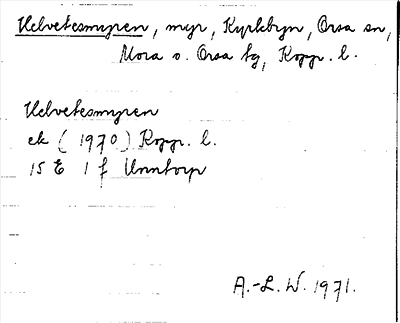 Helvetesmyren, myr, Kyrkbyn, Orsa sn,
Mora o. Orsa tg, Kopp. l.
Helvetesmyren
ek (1970) Kopp. l.
15 E 1 f Unntorp
A.-L. W. 1971.